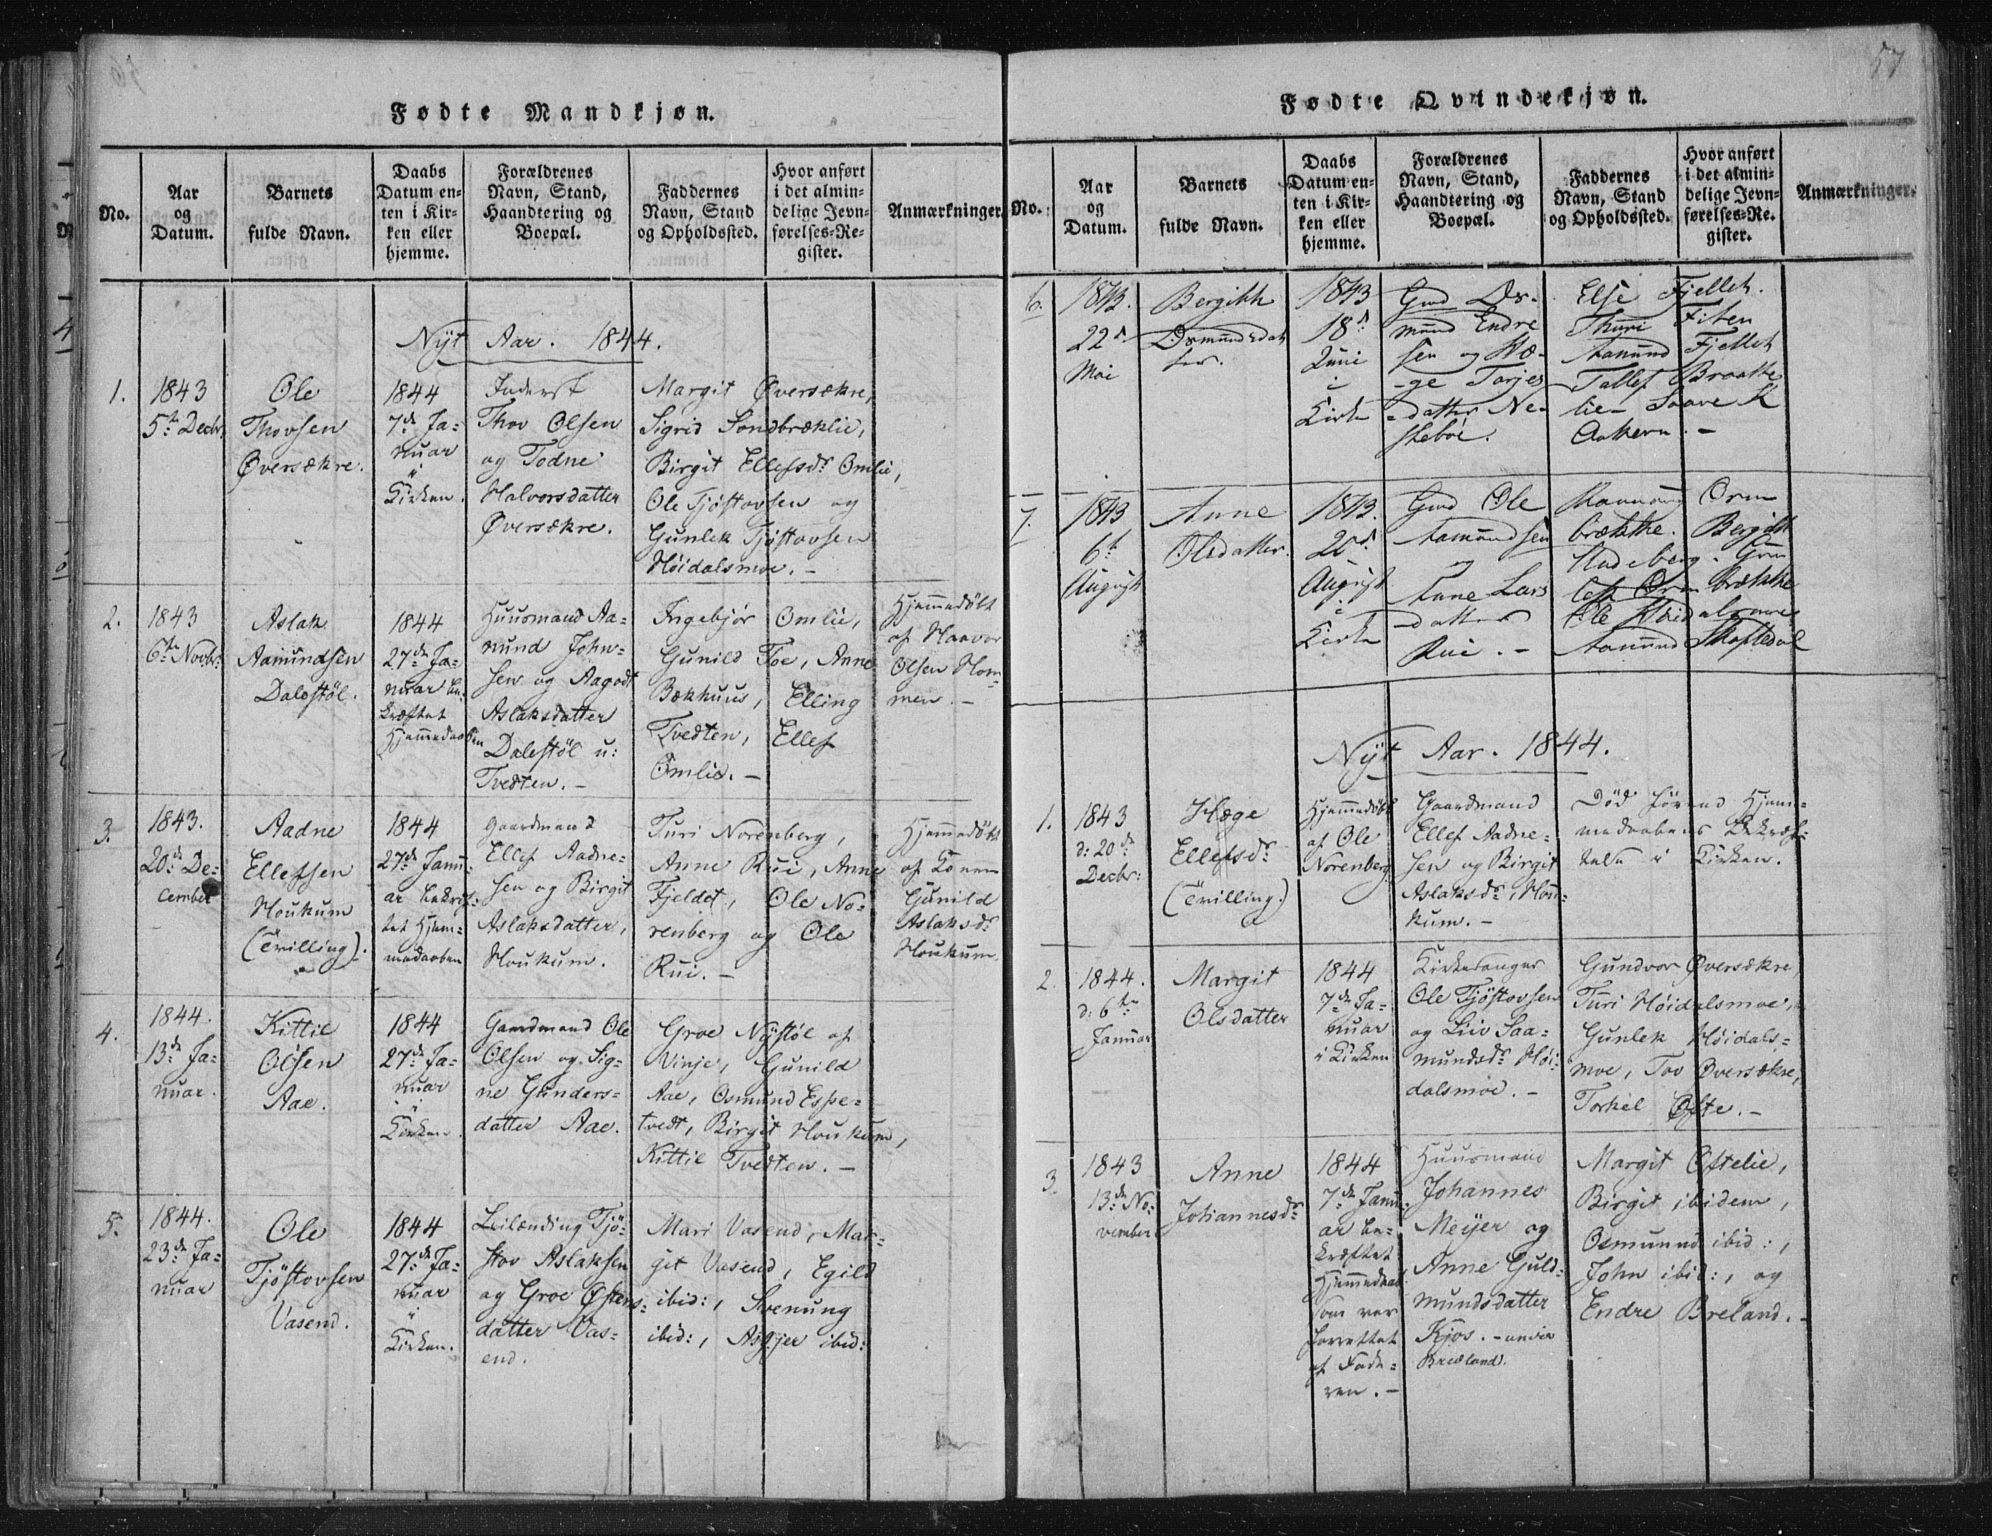 57
Fødte Mandkjøn.
No.
Aar
og
Datum.
Barnets
fulde Navn.
Daabs
Datum en-
ten i Kir-
ken eller
hjemme.
Forældrenes
Navn, Stand,
Haandtering og
Boepæl.
Faddernes
Navn, Stand
og Opholdssted.
Hvor anført
i det almin-
delige Jevn-
førelses-Re-
gister.
Anmærkninger.
Nÿt Aar. 1844.
1.
1843
5te Decbr.
Ole
Thovsen
Øversækre.
1844
7de Ja-
nuar
i
Kirken.
Inderst
Thov Olsen
og Todne
Halvorsdatter
Øversækre.
Margit Øversækre,
Sigrid Sondbræklie,
Birgit Ellefsdr Omlie,
Ole Tjøstovsen og
Gunlek Tjøstovsen
Høidalsmoe. –
2.
1843
6te Novbr.
Aslak
Aamundsen
Dalestöl.
1844
27de Ja-
nuar be-
kræftet
Hjemmedaaben
Huusmand Aa-
mund John-
sen og Aagodt
Aslaksdatter
Dalestöl u:
Tvedten. –
Ingebjør Omlie,
Gunild Toe, Anne
Bækhuus, Elling
Tvedten, Ellef
Omlie. –
Hjemmedöbt
af Haavor
Olsen Hom-
men. –
3.
1843.
20de De-
cember
Aadne
Ellefsen
Houkum
(Tvilling).
1844
27de Janu-
ar bekræf-
tet Hjem-
medaaben
Gaardmand
Ellef Aadne-
sen og Birgit
Aslaksdatter,
Houkum.
Turi Norenberg,
Anne Rui, Anne
Fjeldet, Ole No-
renberg og Ole
Rui. –
Hjemmedöbt
af Konen
Gunild
Aslaksdr
Houkum
4.
1844.
13de Ja-
nuar.
Kittil
Olsen
Aae.
1844
27de Ja-
nuar
i
Kirken.
Gaardmand Ole
Olsen og Sig-
ne Gunders-
datter Aae.
Groe Nÿstöl af
Vinje, Gunild
Aae, Osmund Espe-
tvedt, Birgit Houkum,
Kittil Tvedten. –
5.
1844.
23de Ja-
nuar
Ole
Tjöstovsen
Vasend.
1844
27de Ja-
nuar
i
Kirken.
Leilænding Tjö-
stov Aslaksen
og Groe Østens-
datter Vas-
end.
Mari Vasend, Mar-
git Vasend, Egild
ibid:, Svenung
ibid:, Asgjer ibid:
Fødte Qvindekjøn.
No.
Aar
og
Datum.
Barnets
fulde Navn.
Daabs
Datum en-
ten i Kir-
ken eller
hjemme.
Forældrenes
Navn, Stand,
Haandtering og
Boepæl.
Faddernes
Navn, Stand
og Opholdssted.
Hvor anført
i det almin-
delige Jevn-
førelses-Re-
gister.
Anmærkninger.
6.
1843.
22d
Mai
Bergith
Osmundsdat
ter.
1843
18d
Juni
i
Kirke
Gmd Os-
mund Endre
sen og Hæ-
ge Torjes
datter Ne-
stebøe.
Else Fjellet.
Thuri
Aamund Fjellet
Tallef Braatte
lie
7.
1843
6t
August
Anne
Olsdatter.
1843.
20d
August
i
Kirke
Gmd Ole
Aamundsen
og
Anne Lars
datter
Rui. –
Orm
brække. Bergith
Hadeberg. Gun
lek Orm brække
Ole Høidalsmoe
Aamund Skafledal
Nÿt Aar. 1844.
1.
1843
d: 20de
Decbr:
Hæge
Ellefsdr
(Tvilling.)
Hjemmedöbt
af Ole
Norenberg
Gaardmand
Ellef Aadne-
sen og Birgit
Aslaksdr, Hou-
kum. –
Död förend Hjem-
medaabens Bekræf-
telse i Kirken.
2.
1844.
d: 6te
Januar
Margit
Olsdatter
1844
7de Ja-
nuar
i Kirken
Kirkesanger
Ole Tjöstovsen
og Liv Saa-
mundsdr Höi-
dalsmoe. –
Gundvor Øversækre
Turi Höidalsmoe,
Gunlek Höidals-
moe, Tov Øversækre,
Torkel Ofte. –
3.
1843
13de No-
vember
Anne
Johannesdr
1844
7de Janu-
ar be-
kræftet
Hjemmedaab
som var
forrettet
af Fade-
ren. –
Huusmand
Johannes
Meÿer og
Anne Guld-
mundsdatter
Kjos. – under
Breiland.
Margit Oftelie,
Birgit ibidem,
Osmund ibid:,
John ibid:, og
Endre Breland. –